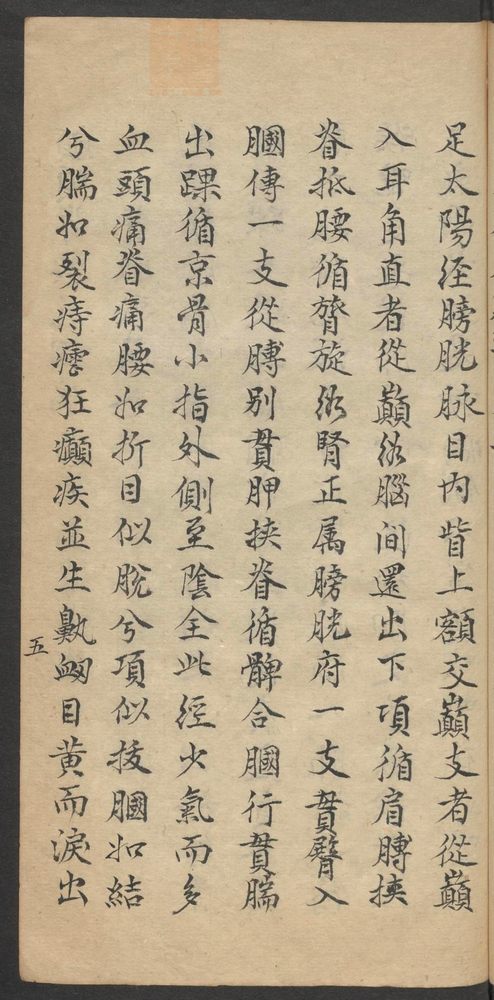 足太陽经膀胱脉目内眥上額交巔支者從巔
入耳角直者從巔絡腦间還出下項循肩膊挾
脊抵腰循膂旋絡腎正属膀胱府一支貫臀入
膕傳一支從膊别貫胛挾脊循髀合膕行貫腨
出踝循京骨小指外側至陰全此經少氣而多
血頭痛脊痛腰如折目似脫兮項似拔膕如結
兮腨如裂痔瘧狂癲疾並生鼽衂目黄而淚出
五